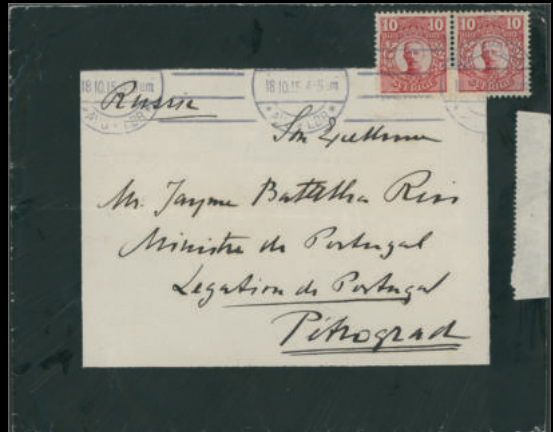 10 10
SVERIGE SVERIGE
18.10.15 4-5 um
Russie
Son Excellence
Mr. Jayme Batalha Reis
Ministre de Portugal
Legation de Portugal
Pétrograd